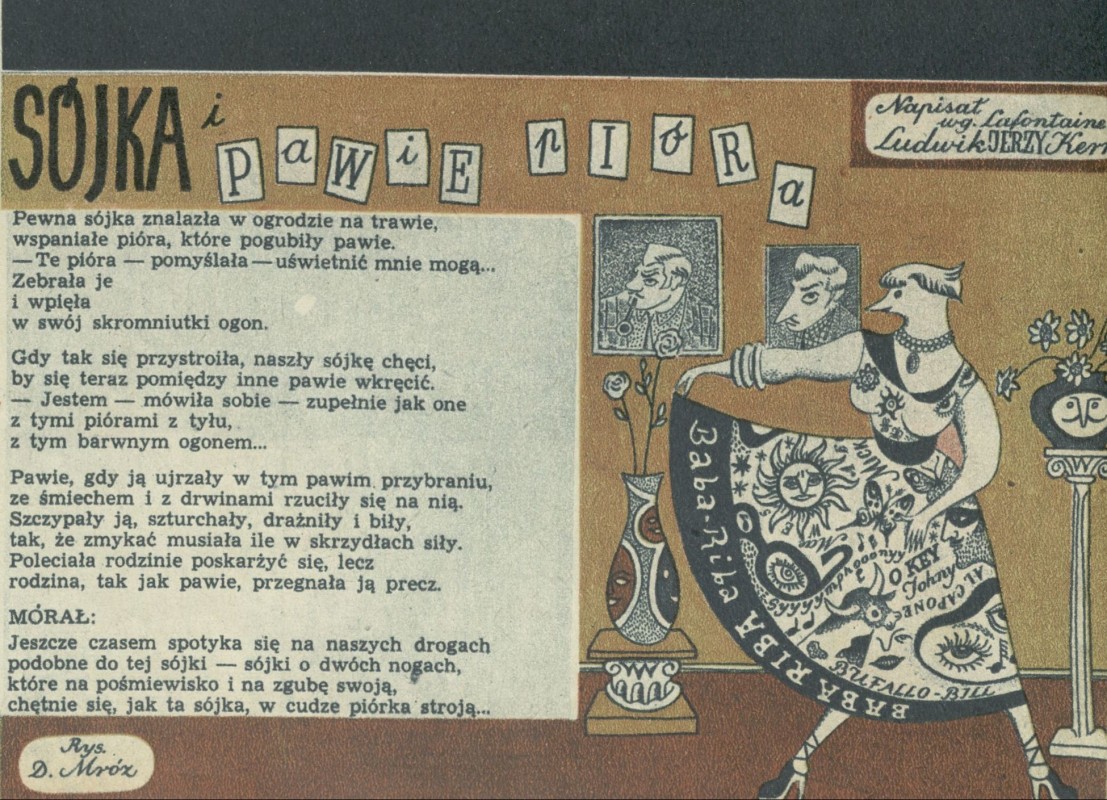 SÓJKA i PaWiE pIóRa
Napisał
wg. Lafontaine
Ludwik JERZY Kern
Pewna sójka znalazła w ogrodzie na trawie,
wspaniałe pióra, które pogubiły pawie.
— Te pióra — pomyślała — uświetnić mnie mogą...
Zebrała je
i wpięła
w swój skromniutki ogon.
Gdy tak się przystroiła, naszły sójkę chęci,
by się teraz pomiędzy inne pawie wkręcić.
— Jestem — mówiła sobie — zupełnie jak one
z tymi piórami z tyłu,
z tym barwnym ogonem...
Pawie, gdy ją ujrzały w tym pawim przybraniu,
ze śmiechem i z drwinami rzuciły się na nią.
Szczypały ją, szturchały, drażniły i biły,
tak, że zmykać musiała ile w skrzydłach siły.
Poleciała rodzinie poskarżyć się, lecz
rodzina, tak jak pawie, przegnała ją precz.
MÓRAŁ:
Jeszcze czasem spotyka się na naszych drogach
podobne do tej sójki — sójki o dwóch nogach,
które na pośmiewisko i na zgubę swoją,
chętnie się, jak ta sójka, w cudze piórka stroją...
Rys.
D. Mróz
Baba-Riba
BABA RIBA
O KEY
Johnny
AL CAPONE
BUFALLO-BILL